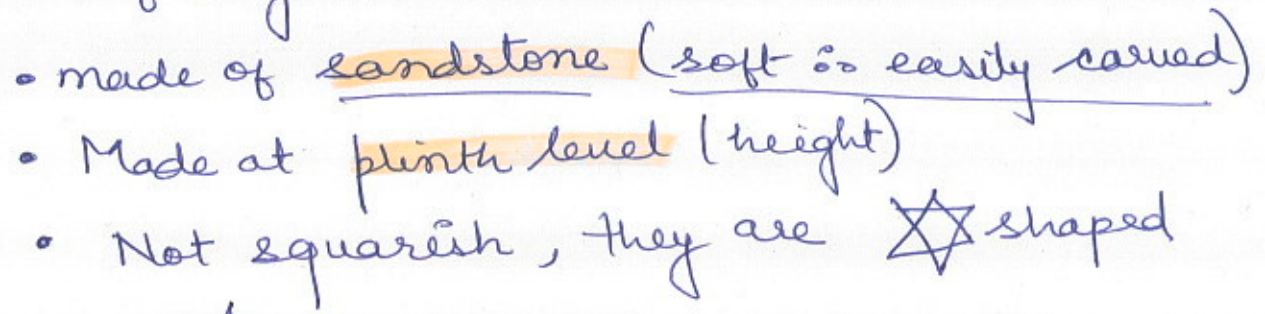 • made of sandstone (soft ∴ easily carved)
• Made at plinth level (height)
• Not squarish, they are ✡ shaped